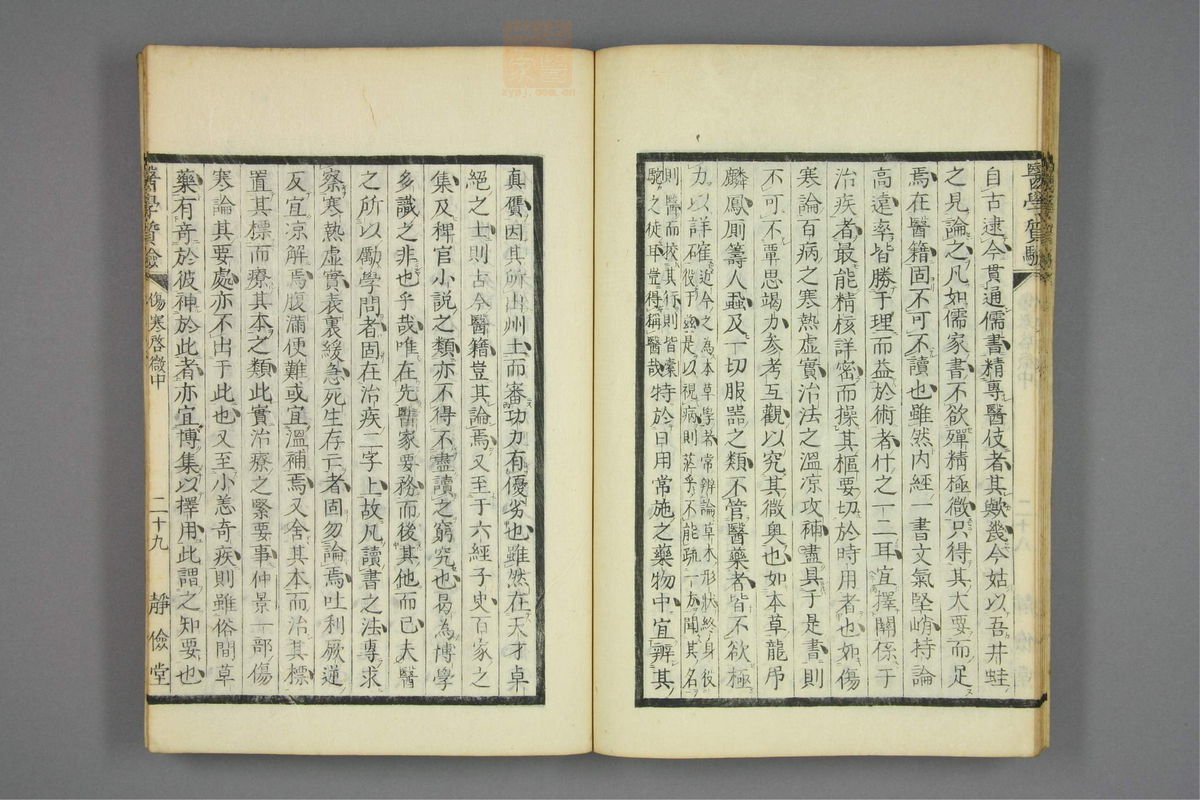 自古逮今貫通儒書精專醫伎者其歟幾今姑以吾井蛙
之見論之凡如儒家書不欲殫精極微只得其大要而足
焉在醫籍固不可不讀也雖然内經一書文氣堅峭特論
高遠率皆勝于理而益於術者什之一二耳宜擇關係于
治疾者最能精核詳密而操其樞要切於時用者也如傷
寒論百病之寒熱虛實治法之溫凉攻補盡具于是書則
不可不覃思竭力參考互觀以究其微奥也如本草龍吊
麟鳳厠籌人蝨及一切服器之類不管醫藥者皆不欲極
力以詳確近今之為本草學者常辨論草木形狀終身役
役于無是以視病則茫乎不能疏一方聞其名
則醫而校其行則皆索
駝之徒耳豈得稱醫哉特於日用常施之藥物中宜辨其
醫學質驗
真贋因其所出州土而審功力有優劣也雖然在天才卓
絕之士則古今醫籍豈其論焉又至于六經子史百家之
集及稗官小說之類亦不得不盡讀之窮究也曷為博學
多識之非也乎哉唯在先醫家要務而後其他而已夫醫
之所以勵學問者固在治疾二字上故凡讀書之法專求
察寒熱虛實表裏緩急死生存亡者固勿論焉吐利厥逆
反宜凉解焉腹滿便難或宜溫補焉又舍其本而治其標
置其標而療其本之類此實治療之緊要事仲景一部傷
寒論其要處亦不出于此也又至小恙奇疾則雖俗間草
藥有奇於彼神於此者亦宜博集以擇用此謂之知要也
醫學質驗 傷寒啓微中 二十九 靜儉堂